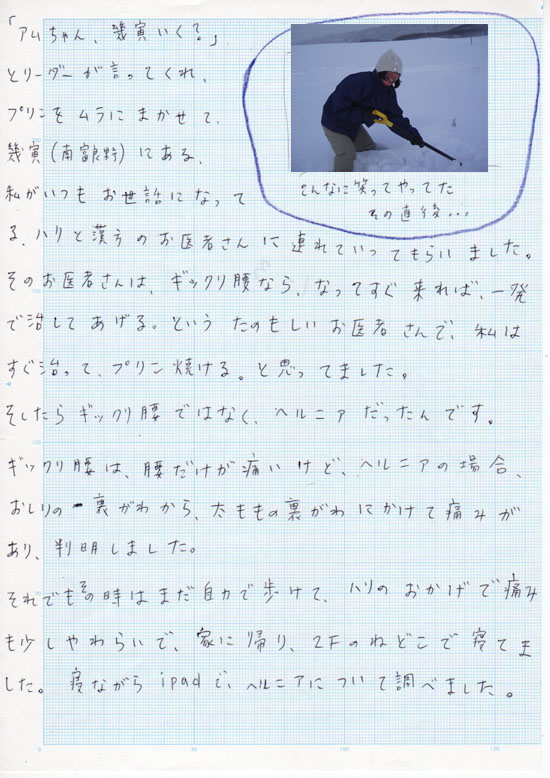 「アムちゃん、幾寅いく？」
とリーダーが言ってくれ、
プリンをムラにまかせて、
幾寅(南富良野)にある、
私がいつもお世話になって
こんなに笑ってやってた
その直後...
る、ハリと漢方のお医者さんに連れていってもらいました。
そのお医者さんは、ギックリ腰なら、なってすぐ来れば、一発
で治してあげる。というたのもしいお医者さんで、私は
すぐ治って、プリン焼ける。と思ってました。
そしたらギックリ腰ではなく、ヘルニアだったんです。
ギックリ腰は、腰だけが痛いけど、ヘルニアの場合、
おしりの裏がわから、太ももの裏がわにかけて痛みが
あり、判明しました。
それでもその時はまだ自力で歩けて、ハリのおかげで痛み
も少しやわらいで、家に帰り、2Fのねどこで寝てま
した。寝ながらipadで、ヘルニアについて調べました。
0
50
100
150